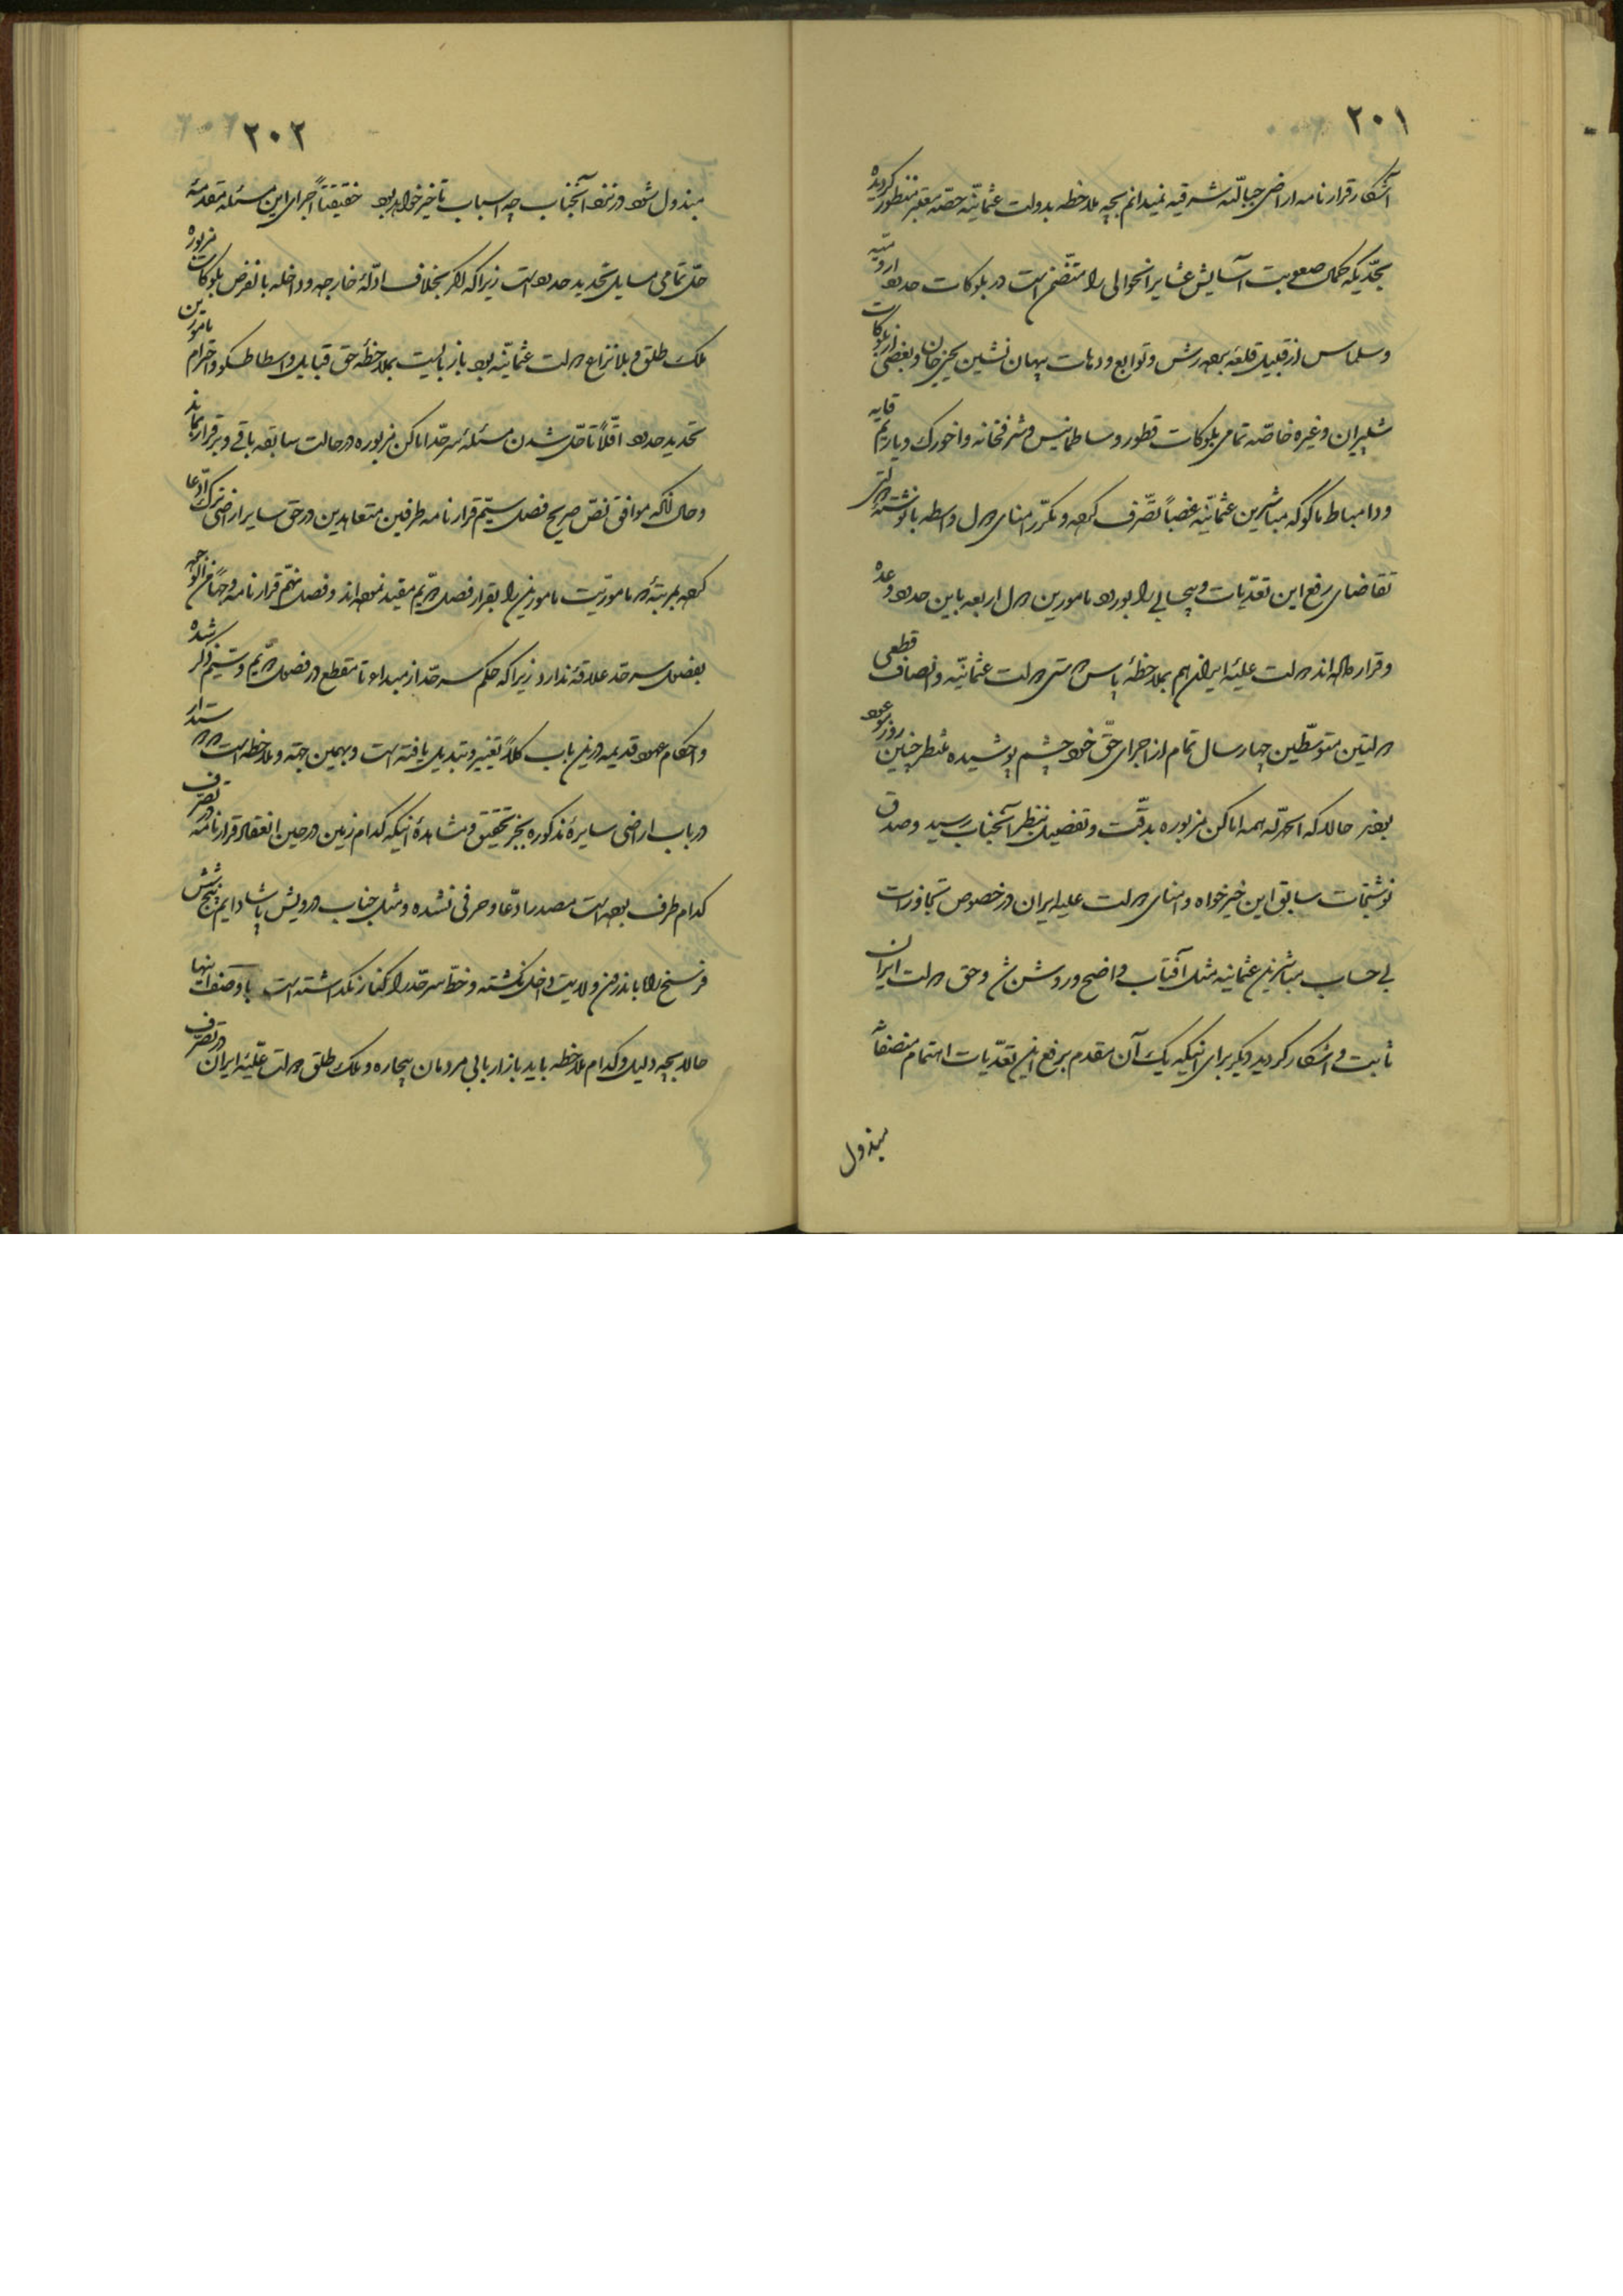 ۲۰۱
آشکار قرارنامه اراضی جبالیّه شرقیه نمیدانم بچه ملاحظه بدولت عثمانیّه حصّه معتبر منظور گردیده
بحدّیکه کمال صعوبت آسایش عشایر انحوالی را متضمّن است در بلوکات حدود ارومیّه
و سلماس از قبیل قلعه و توابع و دهات نشین و بعضی از بلوکات
شلپیران و غیره خاصّه تمامی بلوکات قطور و و شرفخانه و اخورک و یاریم قایه
و دامباط ماکو که مباشرین عثمانیّه غصباً تصّرف کرده و مکرّر امنای دول واسطه با نوشته
تقاضای رفع این تعدّیات و بیحسابی را بورود مامورین دول اربعه باین حدود وعده
و قرار داده‌اند دولت علیّهٔ ایران هم بملاحظهٔ پاس دوستی دولت عثمانیّه و انصاف قطعی
دولتین متوسّطین چهار سال تمام از اجرای حقّ خود چشم پوشیده منتظر چنین روز موعود
بودند حالا که الحمدلّله همه اماکن مزبوره بدقّت و تفصیل بنظر آنجناب رسید و صدق
نوشتجات سابق این خیرخواه و امنای دولت علیه ایران در خصوص تجاوزات
بی‌حساب مباشرین عثمانیه مثل آفتاب واضح و روشن شد و حق دولت ایران
ثابت و اشکار گردید دیگر برای اینکه یک آن مقدم برفع این تعدّیات اهتمام منصفاً
مبذول
۲۰۲
مبذول شود در نزد آنجناب چه اسباب تاخیر خواهد بود حقیقتاً اجرای این مسئله مقدمهٔ
حلّ تمامی مسایل تحدید حدود است زیرا که اگر بخلاف ادلّهٔ خارجه و داخله بالفرض بلوکات مزبوره
ملک طلق و بلانزاع دولت عثمانیّه بود باز بایست بملاحظهٔ حق قبایل واسطا و احترام مامورین
تحدید حدود اقلّاً تا حلّ شدن مسئلهٔ سرحدّ اماکن مزبوره در حالت سابقه باقی و برقرار بماند
و حال آنکه موافق نصّ صریح فصل سیّم قرارنامه طرفین متعاهدین در حق سایر اراضی ترک ادّعا
کرده مامورین را بقرار فصل دویّم مقید نموده‌اند و فصل نهّم قرارنامه وجهاً من الوجوه
بفصول سرحد علاقهٔ ندارد زیرا که حکم سرحد از مبداء تا مقطع در فصول دویّم و سیّم ذکر شده
و احکام عهود قدیمه در این باب کلاً تغییر و تبدیل یافته است و بهمین جهة و ملاحظه است
در باب اراضی سایرهٔ مذکوره بجز تحقیق و مشاهدهٔ اینکه کدام زمین در حین انعقاد قرارنامه در تصرّف
کدام طرف بوده است مصدر ادّعا و حرفی نشده و مثل جناب درویش پاشا دایم پنج شش
فرسخ را باندرون ولایت داخل نگشته و خطّ سرحدّ را کنار نگذاشته است با وصف اینها
حالا بچه دلیل و کدام ملاحظه باید باز اربابی مردمان بیچاره و ملک طلق دولت علّیهٔ ایران در تصرّف